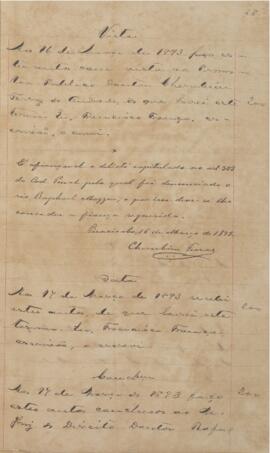 Vista
Aos 16 de Março de 1893 faço es-
tes autos com vista ao Promo-
tor Publico Doutor Cherubim
Ferraz de Andrade, do que lavrei este
termo. Eu, Francisco França, es-
crivão, o escrevi.
É afiançavel o delicto capitulado no art. 303
do Cod. Penal pelo qual foi denunciado o
réo Raphael, e por isso deve-se lhe
conceder a fiança requerida.
Piracicaba, 16 de Março de 1893.
Cherubim Ferraz
Data
Aos 17 de Março de 1893 recebi
estes autos, do que lavrei este
termo. Eu, Francisco França,
escrivão, o escrevi.
Conclusão
Aos 17 de Março de 1893 faço
estes autos conclusos ao Dr.
Juiz de Direito Doutor Rafael